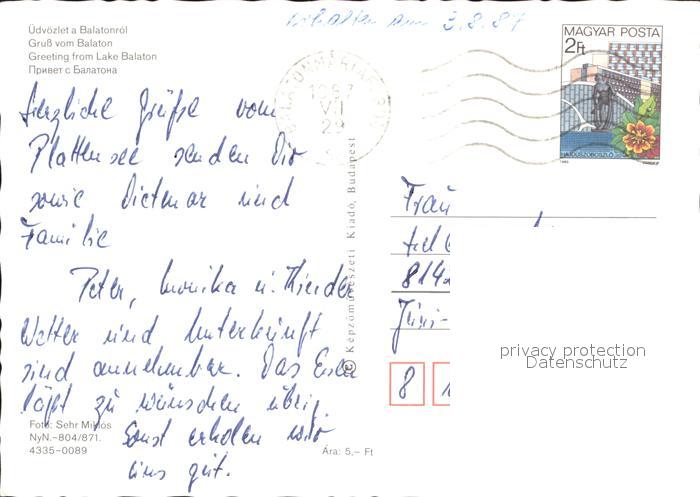 erhalten am 3.8.87
Üdvözlet a Balatonról
Gruß vom Balaton
Greeting from Lake Balaton
Привет с Балатона
MAGYAR POSTA
2Ft
HAJDÚSZOBOSZLÓ
1987
VII
29
Herzliche Grüße vom
Plattensee senden Dir
sowie Dietmar und
Familie
Peter, Monika u. Kinder
Wetter und Unterkunft
sind annehmbar. Das Essen
läßt zu wünschen übrig.
Sonst erholen wir
uns gut.
© Képzőművészeti Kiadó, Budapest
Frau
Jüri-
8
privacy protection
Datenschutz
Fotó: Sehr Miklós
NyN.-804/871.
4335-0089
Ára: 5,- Ft